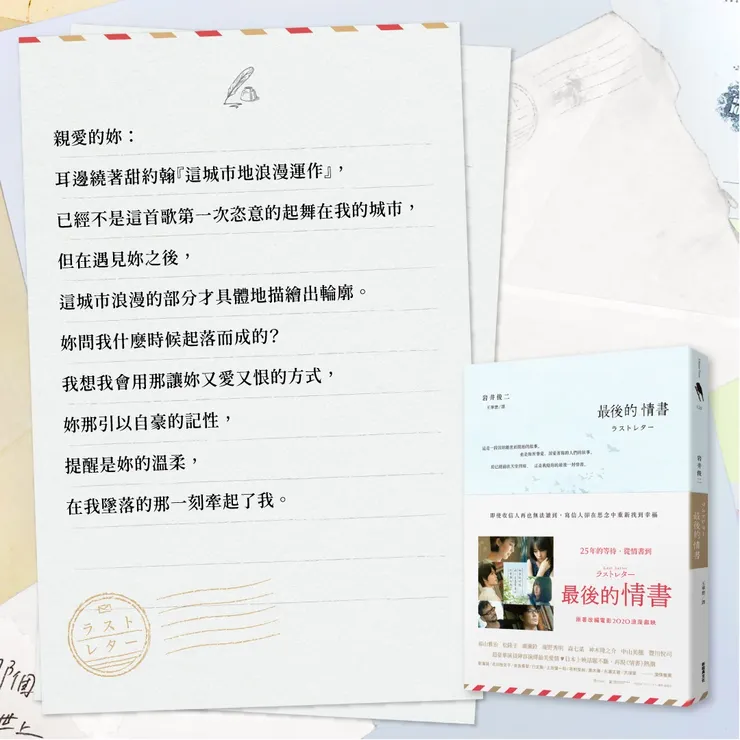 親愛的妳：
耳邊繞著甜約翰『這城市地浪漫運作』，
已經不是這首歌第一次恣意的起舞在我的城市，
但在遇見妳之後，
這城市浪漫的部分才具體地描繪出輪廓。
妳問我什麼時候起落而成的？
我想我會用那讓妳又愛又恨的方式，
妳那引以自豪的記性，
提醒是妳的溫柔，
在我墜落的那一刻牽起了我。
ラスト
レター
岩井俊二
王華懋/譯
最後的情書
ラストレター
即使收信人再也無法讀到，寫信人卻在思念中重新找到幸福
25年的等待，從情書到
ラストレター
最後的情書
原著改編電影2020浪漫獻映
岩井俊二
最後的情書
那個
世上